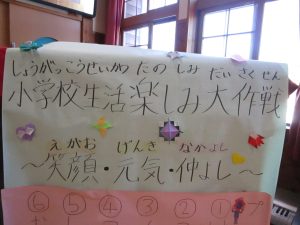 しょうがっこうせいかつ たの しみ だい さく せん
小学校生活楽しみ大作戦
えがお げんき なかよし
～笑顔・元気・仲よし～
⑥ ⑤ ④ ③ ② ① プ